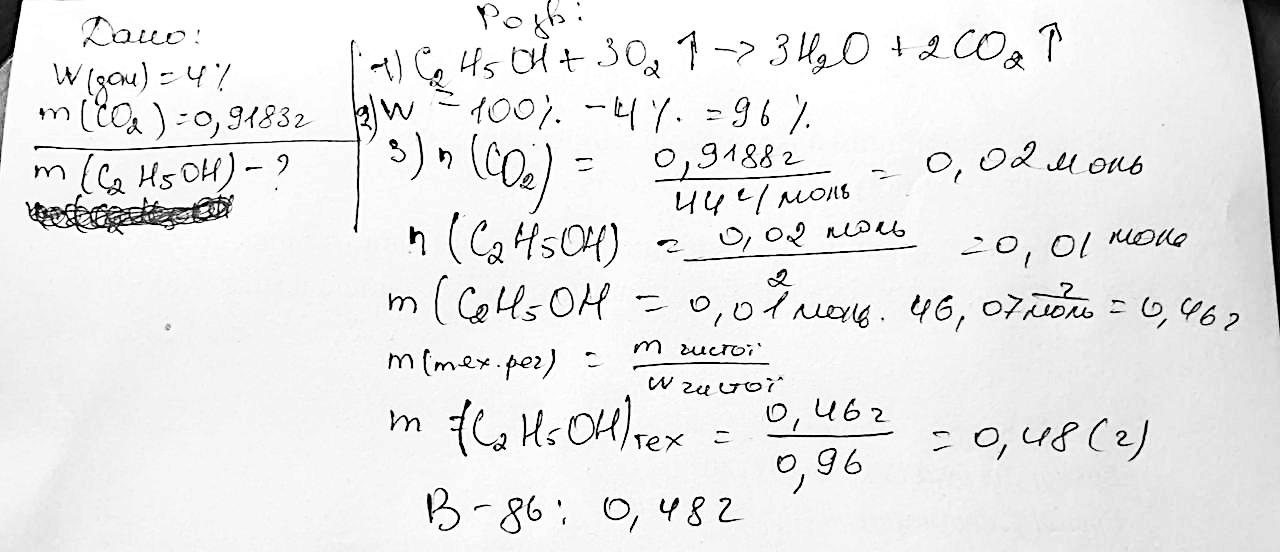 Дано:
W(дом) = 4%
m(CO₂) = 0,9183г
m(C₂H₅OH) - ?
Розв:
1) C₂H₅OH + 3O₂↑ → 3H₂O + 2CO₂↑
2) W = 100% - 4% = 96%
3) n(CO₂) = 0,9188г / 44 г/моль = 0,02 моль
n(C₂H₅OH) = 0,02 моль / 2 = 0,01 моль
m(C₂H₅OH = 0,01 моль · 46,07 г/моль = 0,46г
m(тех.рег) = m чистої / W чистої
m (C₂H₅OH)тех = 0,46г / 0,96 = 0,48(г)
В-дь: 0,48г